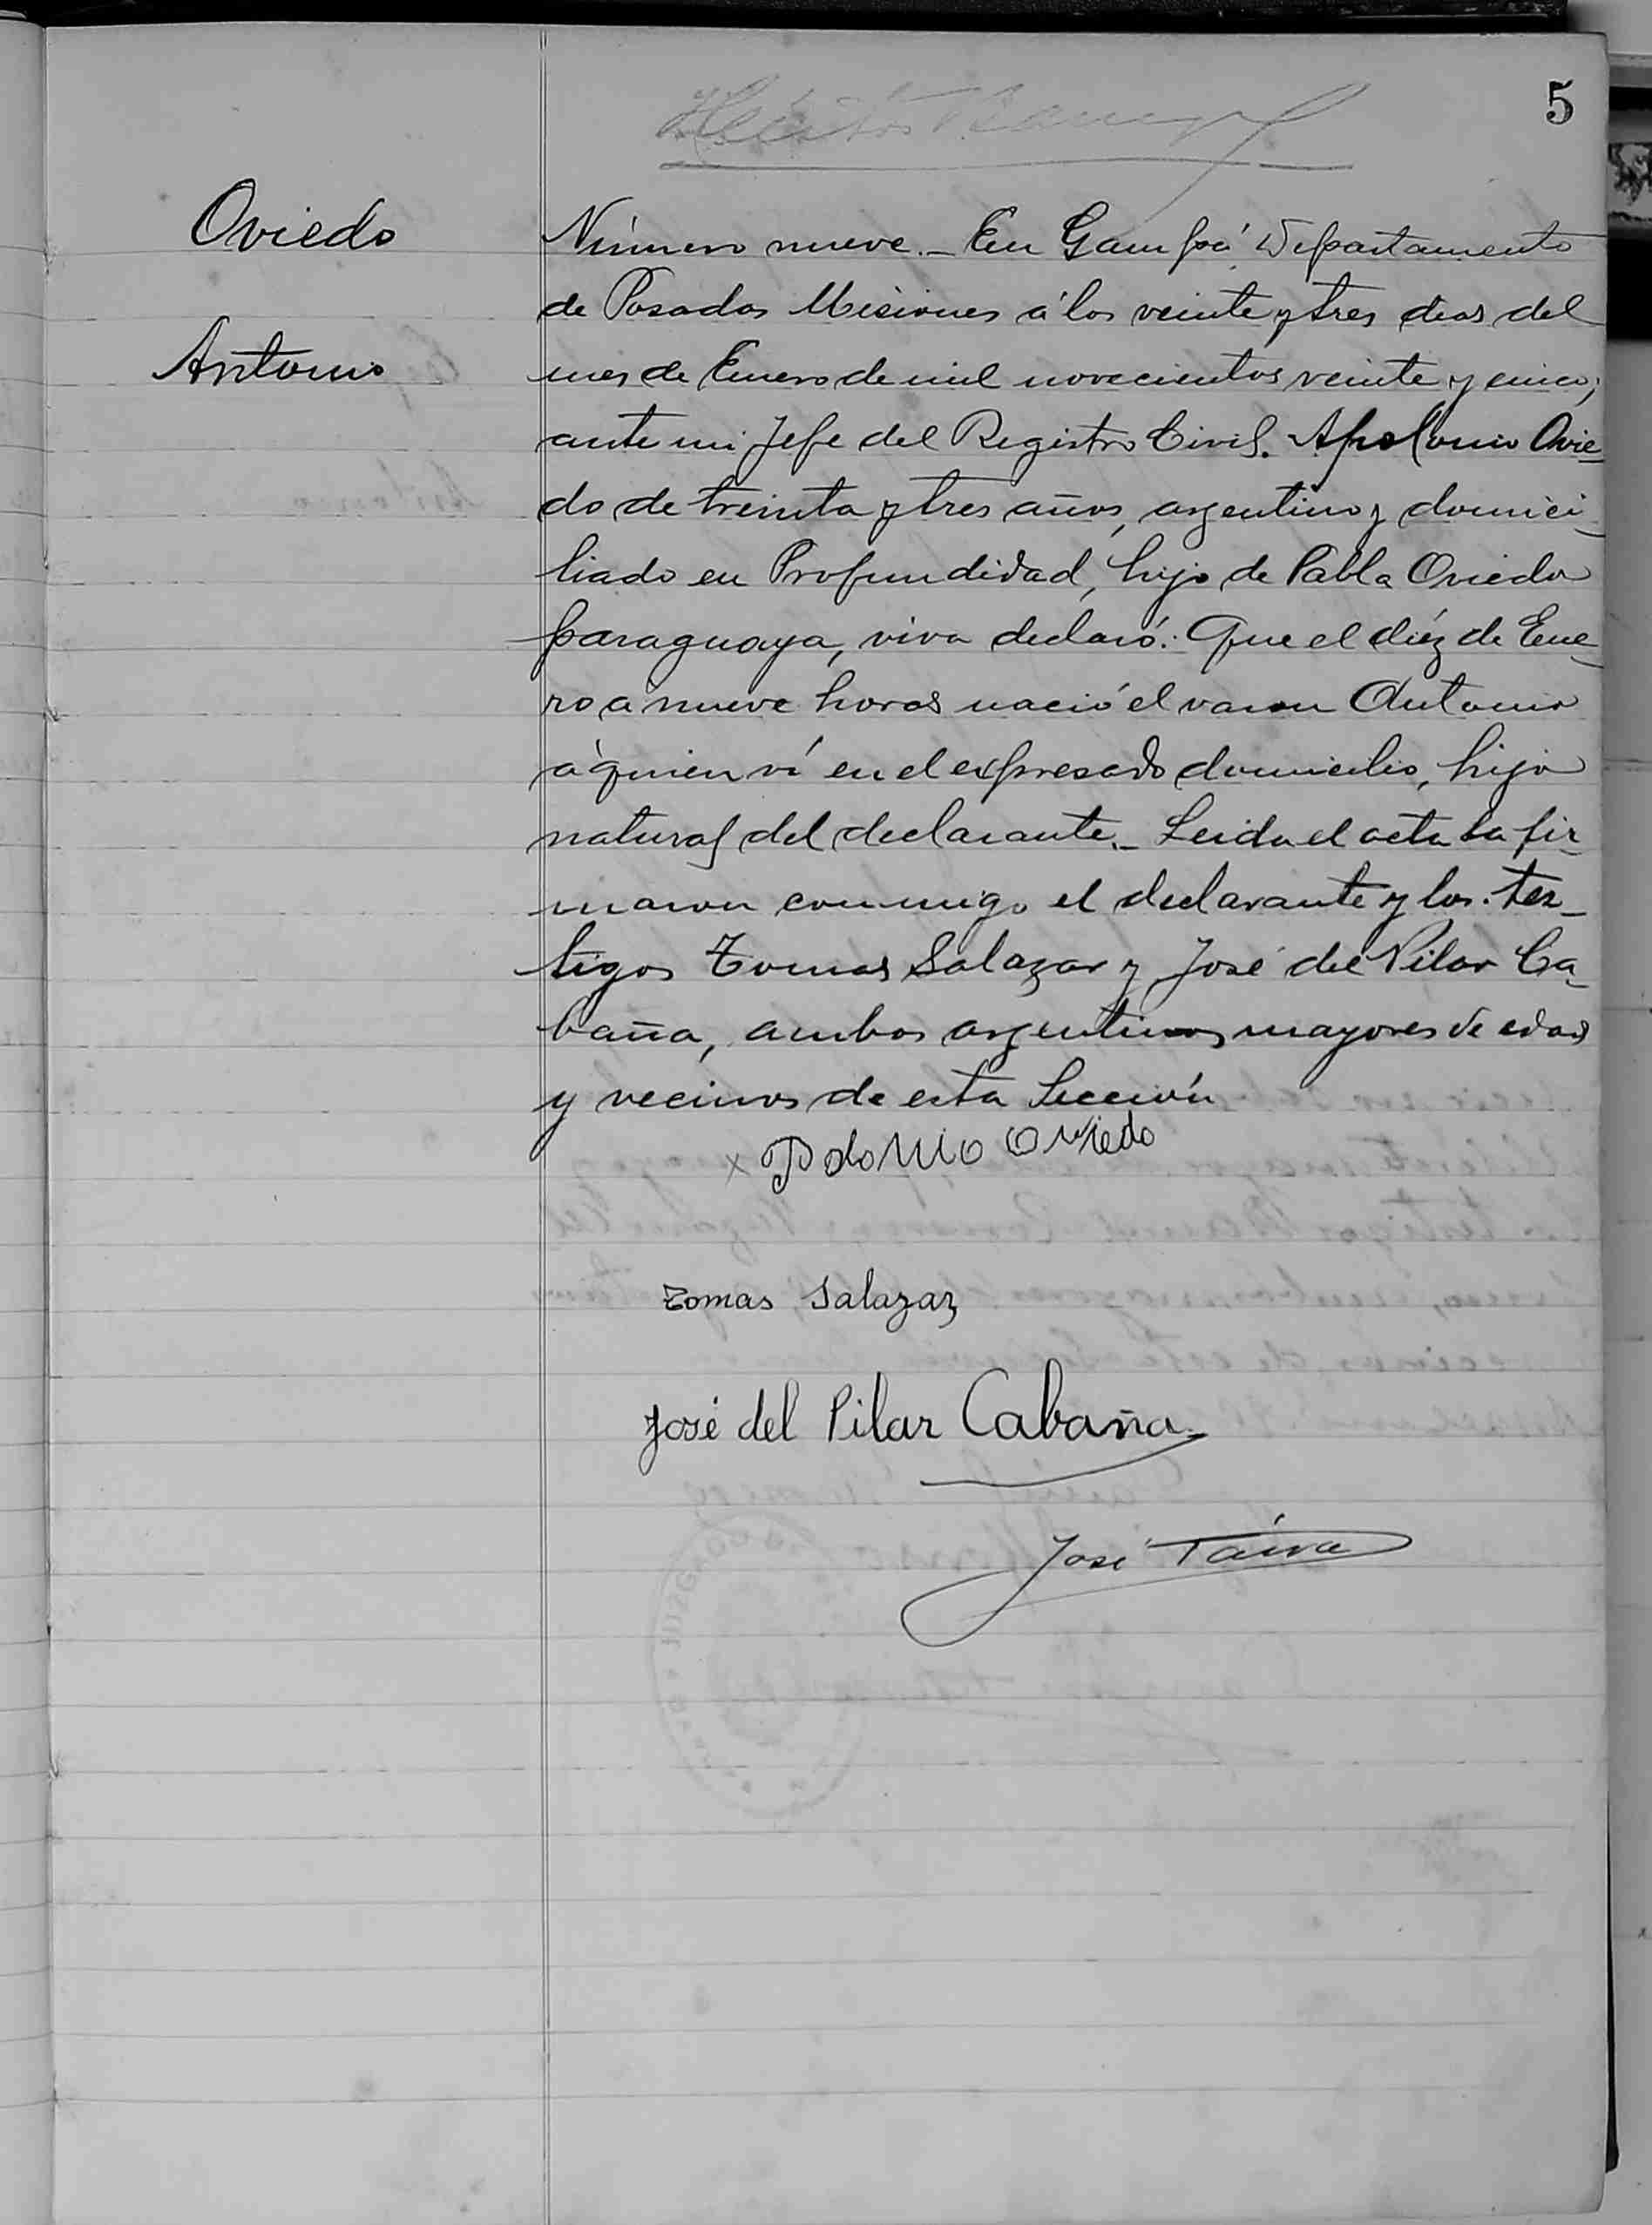 5
Oviedo
Antonio
Número nueve._ En Garupá Departamento
de Posadas Misiones á los veinte y tres dias del
mes de Enero de mil novecientos veinte y cinco;
ante mi Jefe del Registro Civil. Apolonio Ovie_
do de treinta y tres años, argentino y domici_
liado en Profundidad, hijo de Pabla Oviedo
paraguaya, viva declaró: Que el diéz de Ene_
ro a nueve horas nació el varon Antonio
á quien ví en el expresado domicilio, hijo
natural del declarante._ Leida el acta la fir_
maron conmigo el declarante y los tes_
tigos Tomas Salazar y José del Pilar Ca_
baña, ambos argentinos mayores de edad
y vecinos de esta Sección
x Polonio Oviedo
Tomas Salazar
José del Pilar Cabaña
José